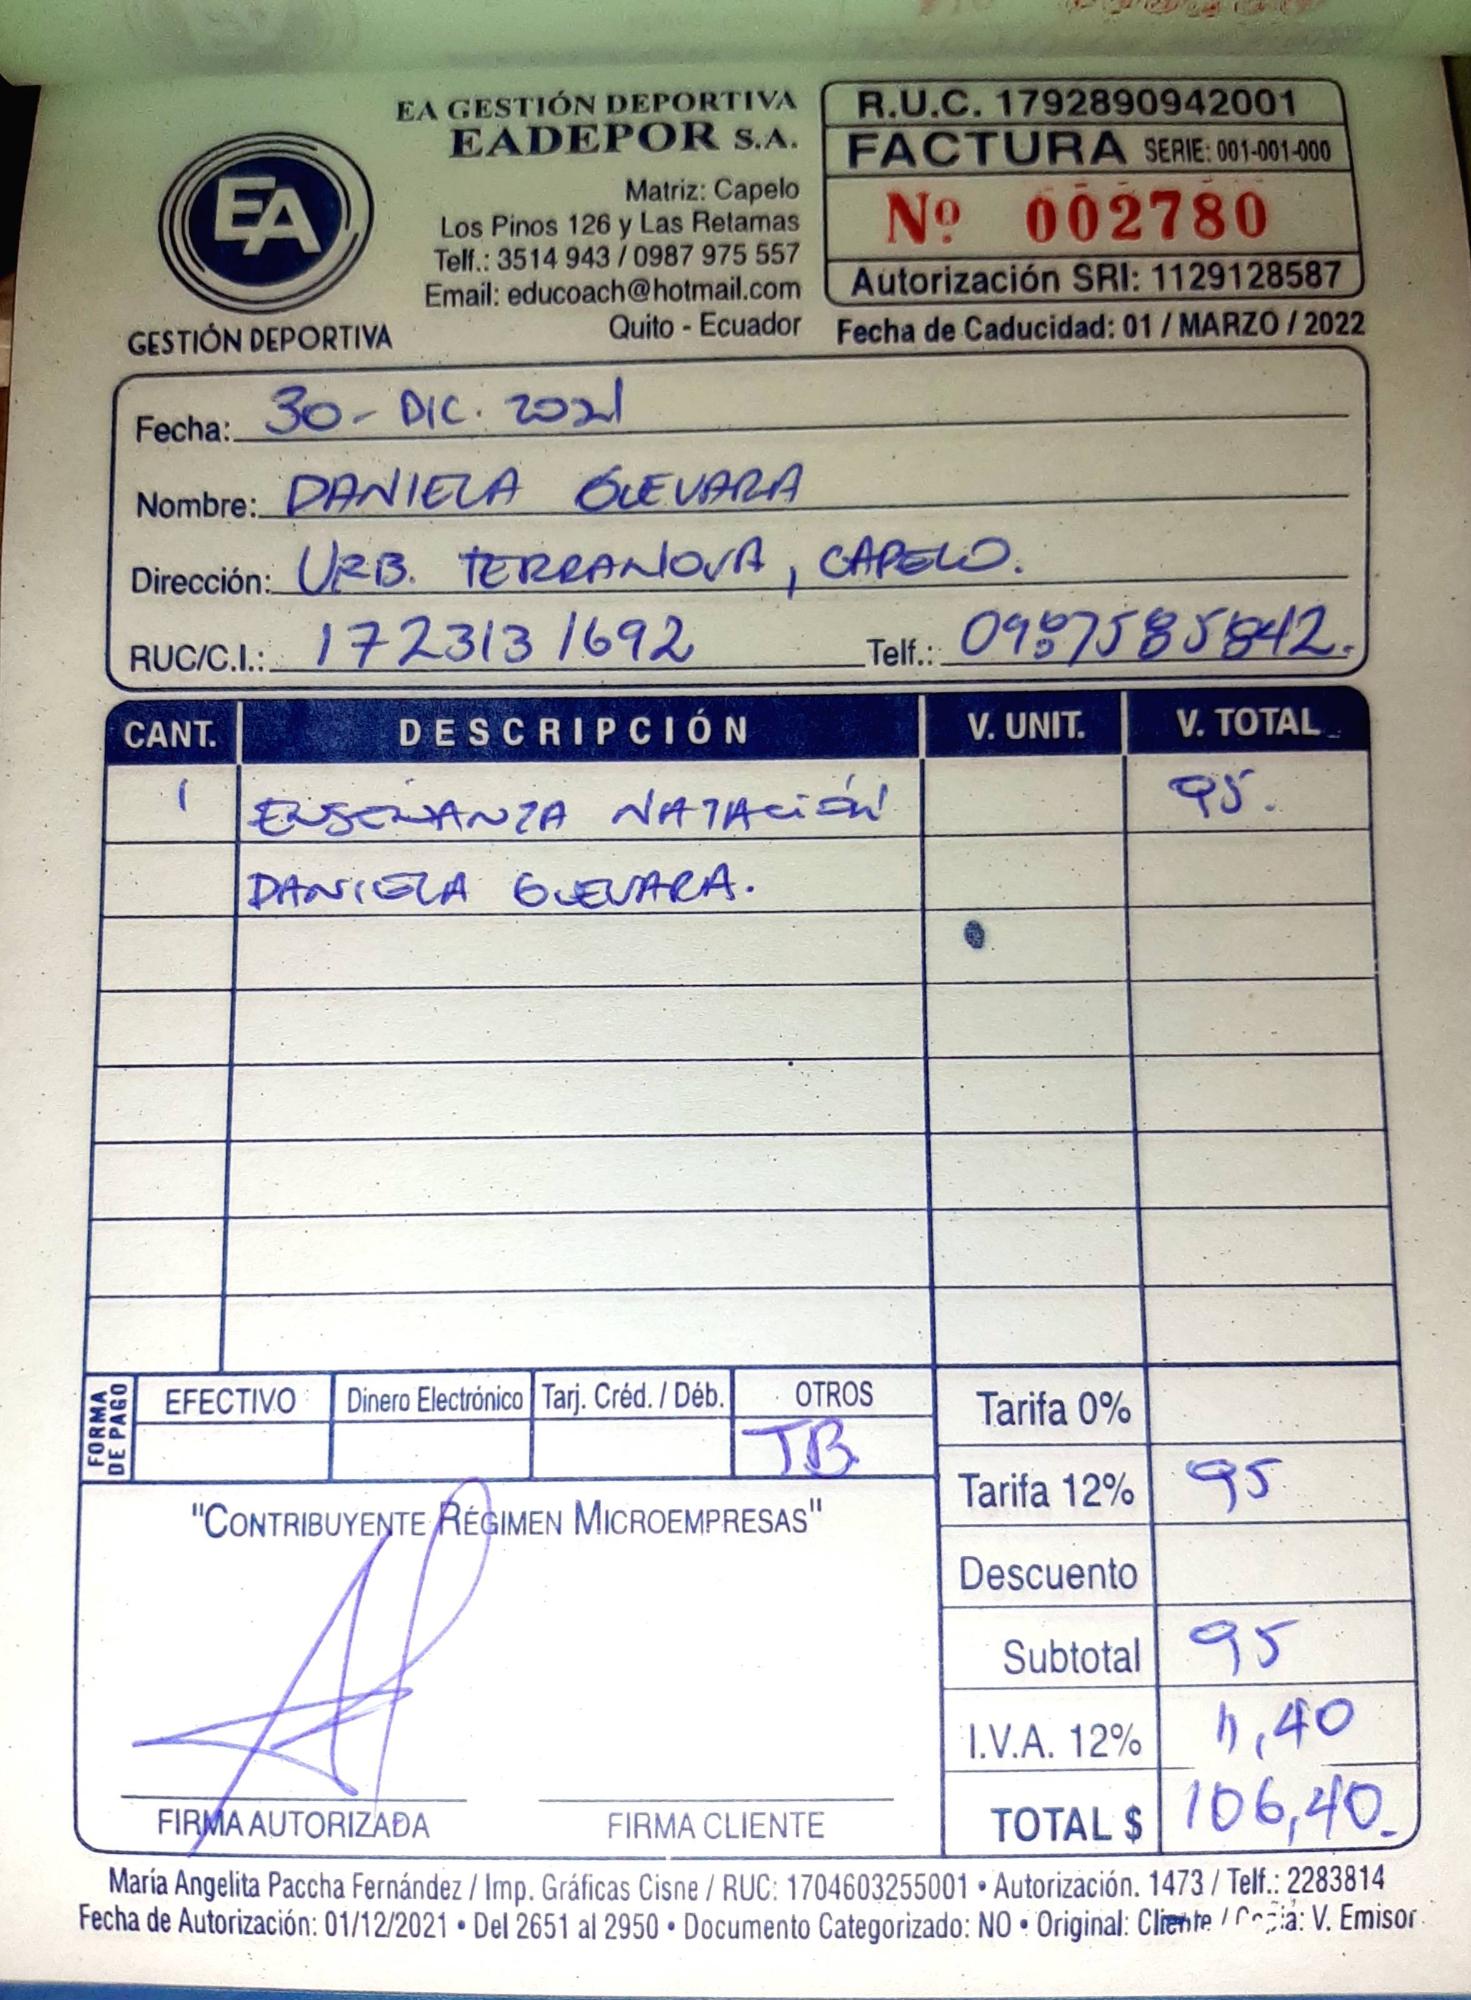 EA GESTIÓN DEPORTIVA
EADEPOR S.A.
Matriz: Capelo
Los Pinos 126 y Las Retamas
Telf.: 3514 943 / 0987 975 557
Email: educoach@hotmail.com
Quito - Ecuador
EA
GESTIÓN DEPORTIVA
R.U.C. 1792890942001
FACTURA SERIE: 001-001-000
Nº 002780
Autorización SRI: 1129128587
Fecha de Caducidad: 01 / MARZO / 2022
Fecha: 30 - DIC. 2021
Nombre: DANIELA GUEVARA
Dirección: URB. TERRANOVA, CAPELO.
RUC/C.I.: 1723131692 Telf.: 0987585842.
CANT. DESCRIPCIÓN V. UNIT. V. TOTAL
1 ENSEÑANZA NATACIÓN 95.
DANIELA GUEVARA.
FORMA DE PAGO
EFECTIVO Dinero Electrónico Tarj. Créd. / Déb. OTROS
TB
Tarifa 0%
Tarifa 12% 95
Descuento
Subtotal 95
I.V.A. 12% 11,40
TOTAL $ 106,40.
"CONTRIBUYENTE RÉGIMEN MICROEMPRESAS"
FIRMA AUTORIZADA FIRMA CLIENTE
María Angelita Paccha Fernández / Imp. Gráficas Cisne / RUC: 1704603255001 • Autorización. 1473 / Telf.: 2283814
Fecha de Autorización: 01/12/2021 • Del 2651 al 2950 • Documento Categorizado: NO • Original: Cliente / Copia: V. Emisor